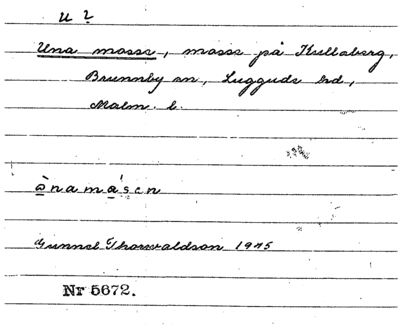 U ?
Una mosse, mosse på Kullaberg,
Brunnby sn, Luggude hd,
Malm. l.
ònamåsen
Gunnel Thorvaldson 1945
Nr 5672.